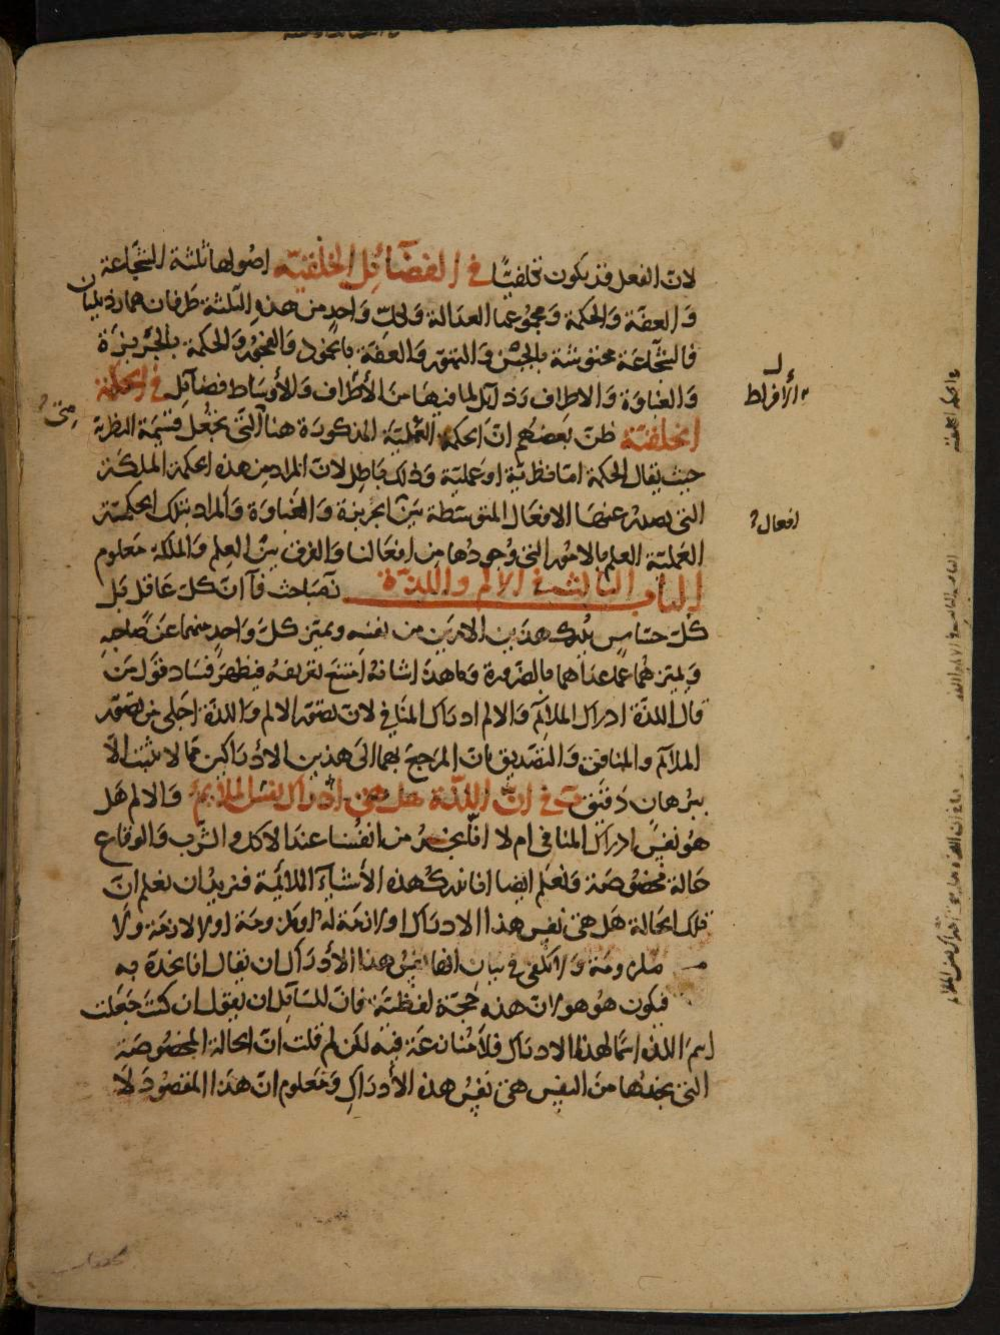 لان الفعل قد يكون تخلقيا في الفضائل الخلقية اصولها ثلثة الشجاعة
والعفة والحكمة ومجموعها العدالة ولكل واحد من هذه الثلثة طرفان هما رذيلتان
فالشجاعة محتوشة بالجبن والتهور والعفة بالخمود والفجور والحكمة بالجربزة
والغباوة والاطراف رذايل لما فيها من الأطراف والأوساط فضائل في الحكمة
الخلقية ظن بعضهم ان الحكمة العملية المذكورة هنا التي تجعل قسيمة النظرية
حيث يقال الحكمة اما نظرية او عملية وذلك باطل لان المراد من هذه الحكمة الملكة
التي يصدر عنها الافعال المتوسطة بين الجربزة والغباوة والمراد بتلك الحكمة
العملية العلم بالامور التي وجودها من افعالنا والفرق بين العلم والملكة معلوم
الباب الثالث في الالم واللذة مباحث آ ان كل عاقل بل
كل حساس يدرك هذين الامرين من نفسه ويميز كل واحد منهما عن صاحبه
ويميزهما عما عداهما بالضرورة وما هذا شانه امتنع تعريفه فيظهر فساد قول من
قال اللذة ادراك الملائم والالم ادراك المنافي لان تصور الالم واللذة اجلى من تصور
الملائم والمنافي والتصديق بان المرجع بهما الى هذين الادراكين مما لا يثبت الا
ببرهان دقيق في ان اللذة هل هي ادراك نفس الملايم والالم هل
هو نفس ادراك المنافي ام لا انا نجد من انفسنا عند الاكل والشرب والوقاع
حالة مخصوصة ونعلم ايضا انا ندرك هذه الأشياء الملائمة فنريد ان نعلم ان
تلك الحالة هل هي نفس هذا الادراك او لازمة له او ملزومة او لا لازمة ولا
ملزومة ولا يكفي في بيان انها نفس هذا الأدراك ان يقال انا نجده به
فيكون هو هو لان هذه حجة لفظية فان للسائل ان يقول ان كنت جعلت
اسم اللذة اسما لهذا الادراك فلا منازعة فيه لكن لم قلت ان الحالة المخصوصة
التي نجدها من النفس هي نفس هذه الأدراك ومعلوم ان هذا المقصود لا
الأفراط
افعال